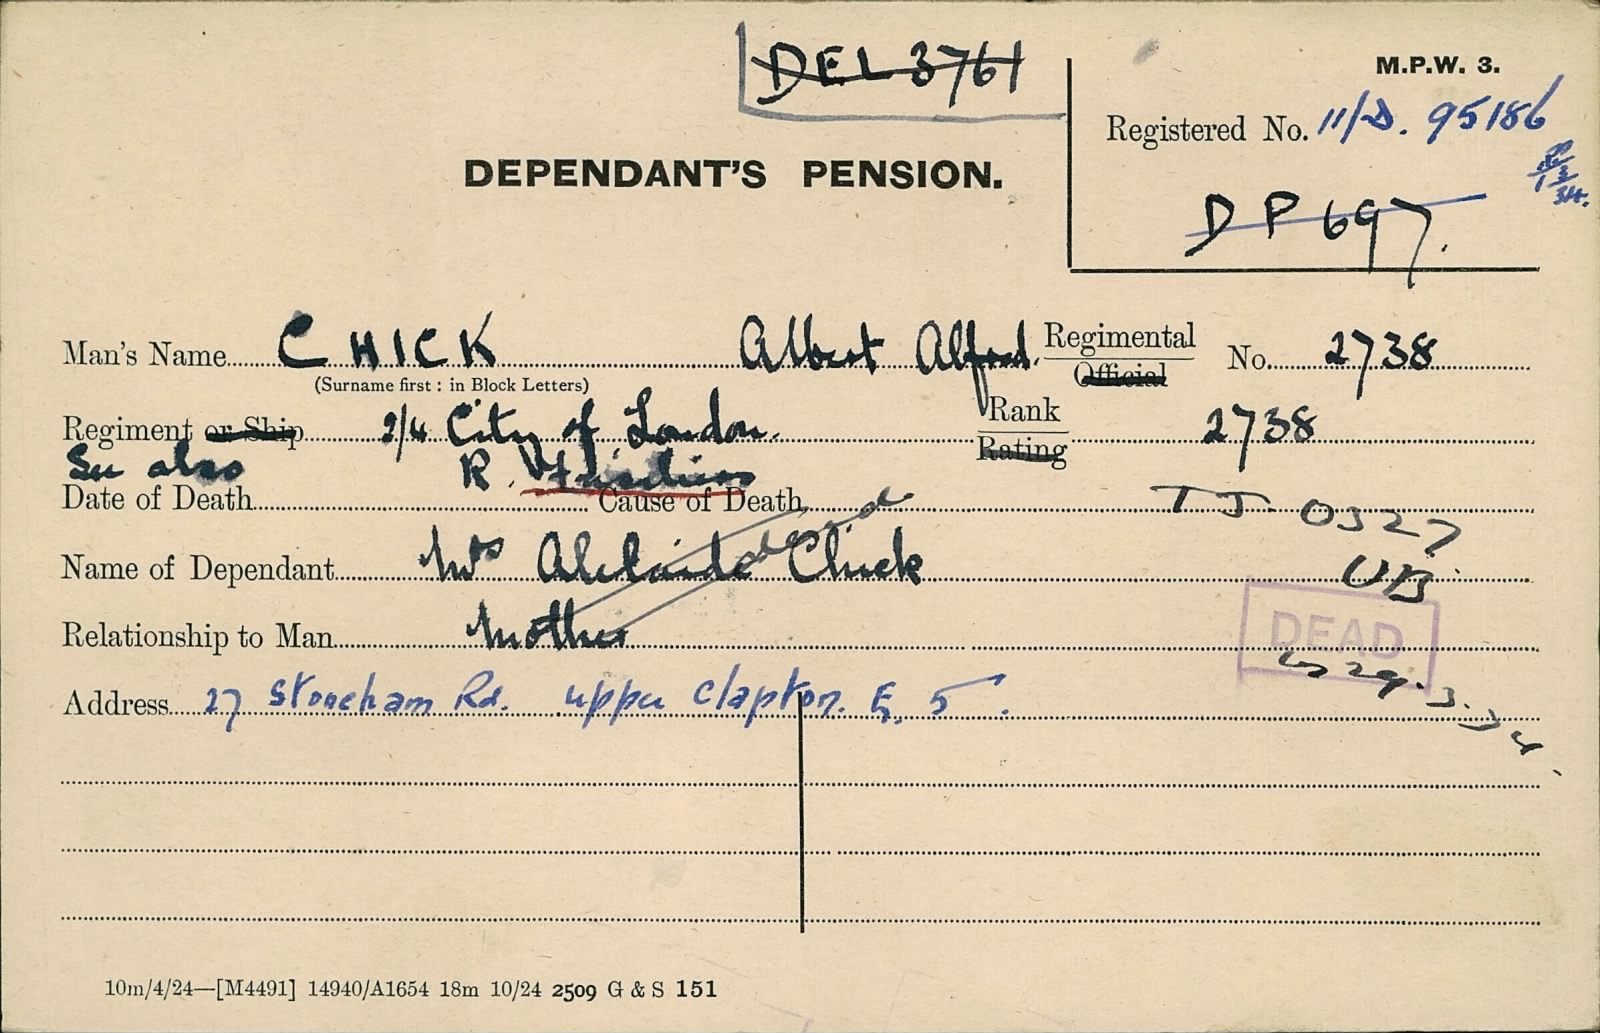 DEL 3761
M.P.W. 3.
Registered No. 11/D. 95186
DEPENDANT'S PENSION.
DP 697.
Man's Name CHICK Albert Alfred. Regimental Official No. 2738
(Surname first : in Block Letters)
Regiment or Ship 2/4 City of London. Rank Rating 2738
See also R. Fusiliers
Date of Death Cause of Death
TJ. 0327
dead
Name of Dependant Mrs Adelaide Chick
UB.
Relationship to Man Mother
DEAD
29.3.34.
Address 27 Stoneham Rd. upper Clapton. E. 5.
10m/4/24—[M4491] 14940/A1654 18m 10/24 2509 G & S 151